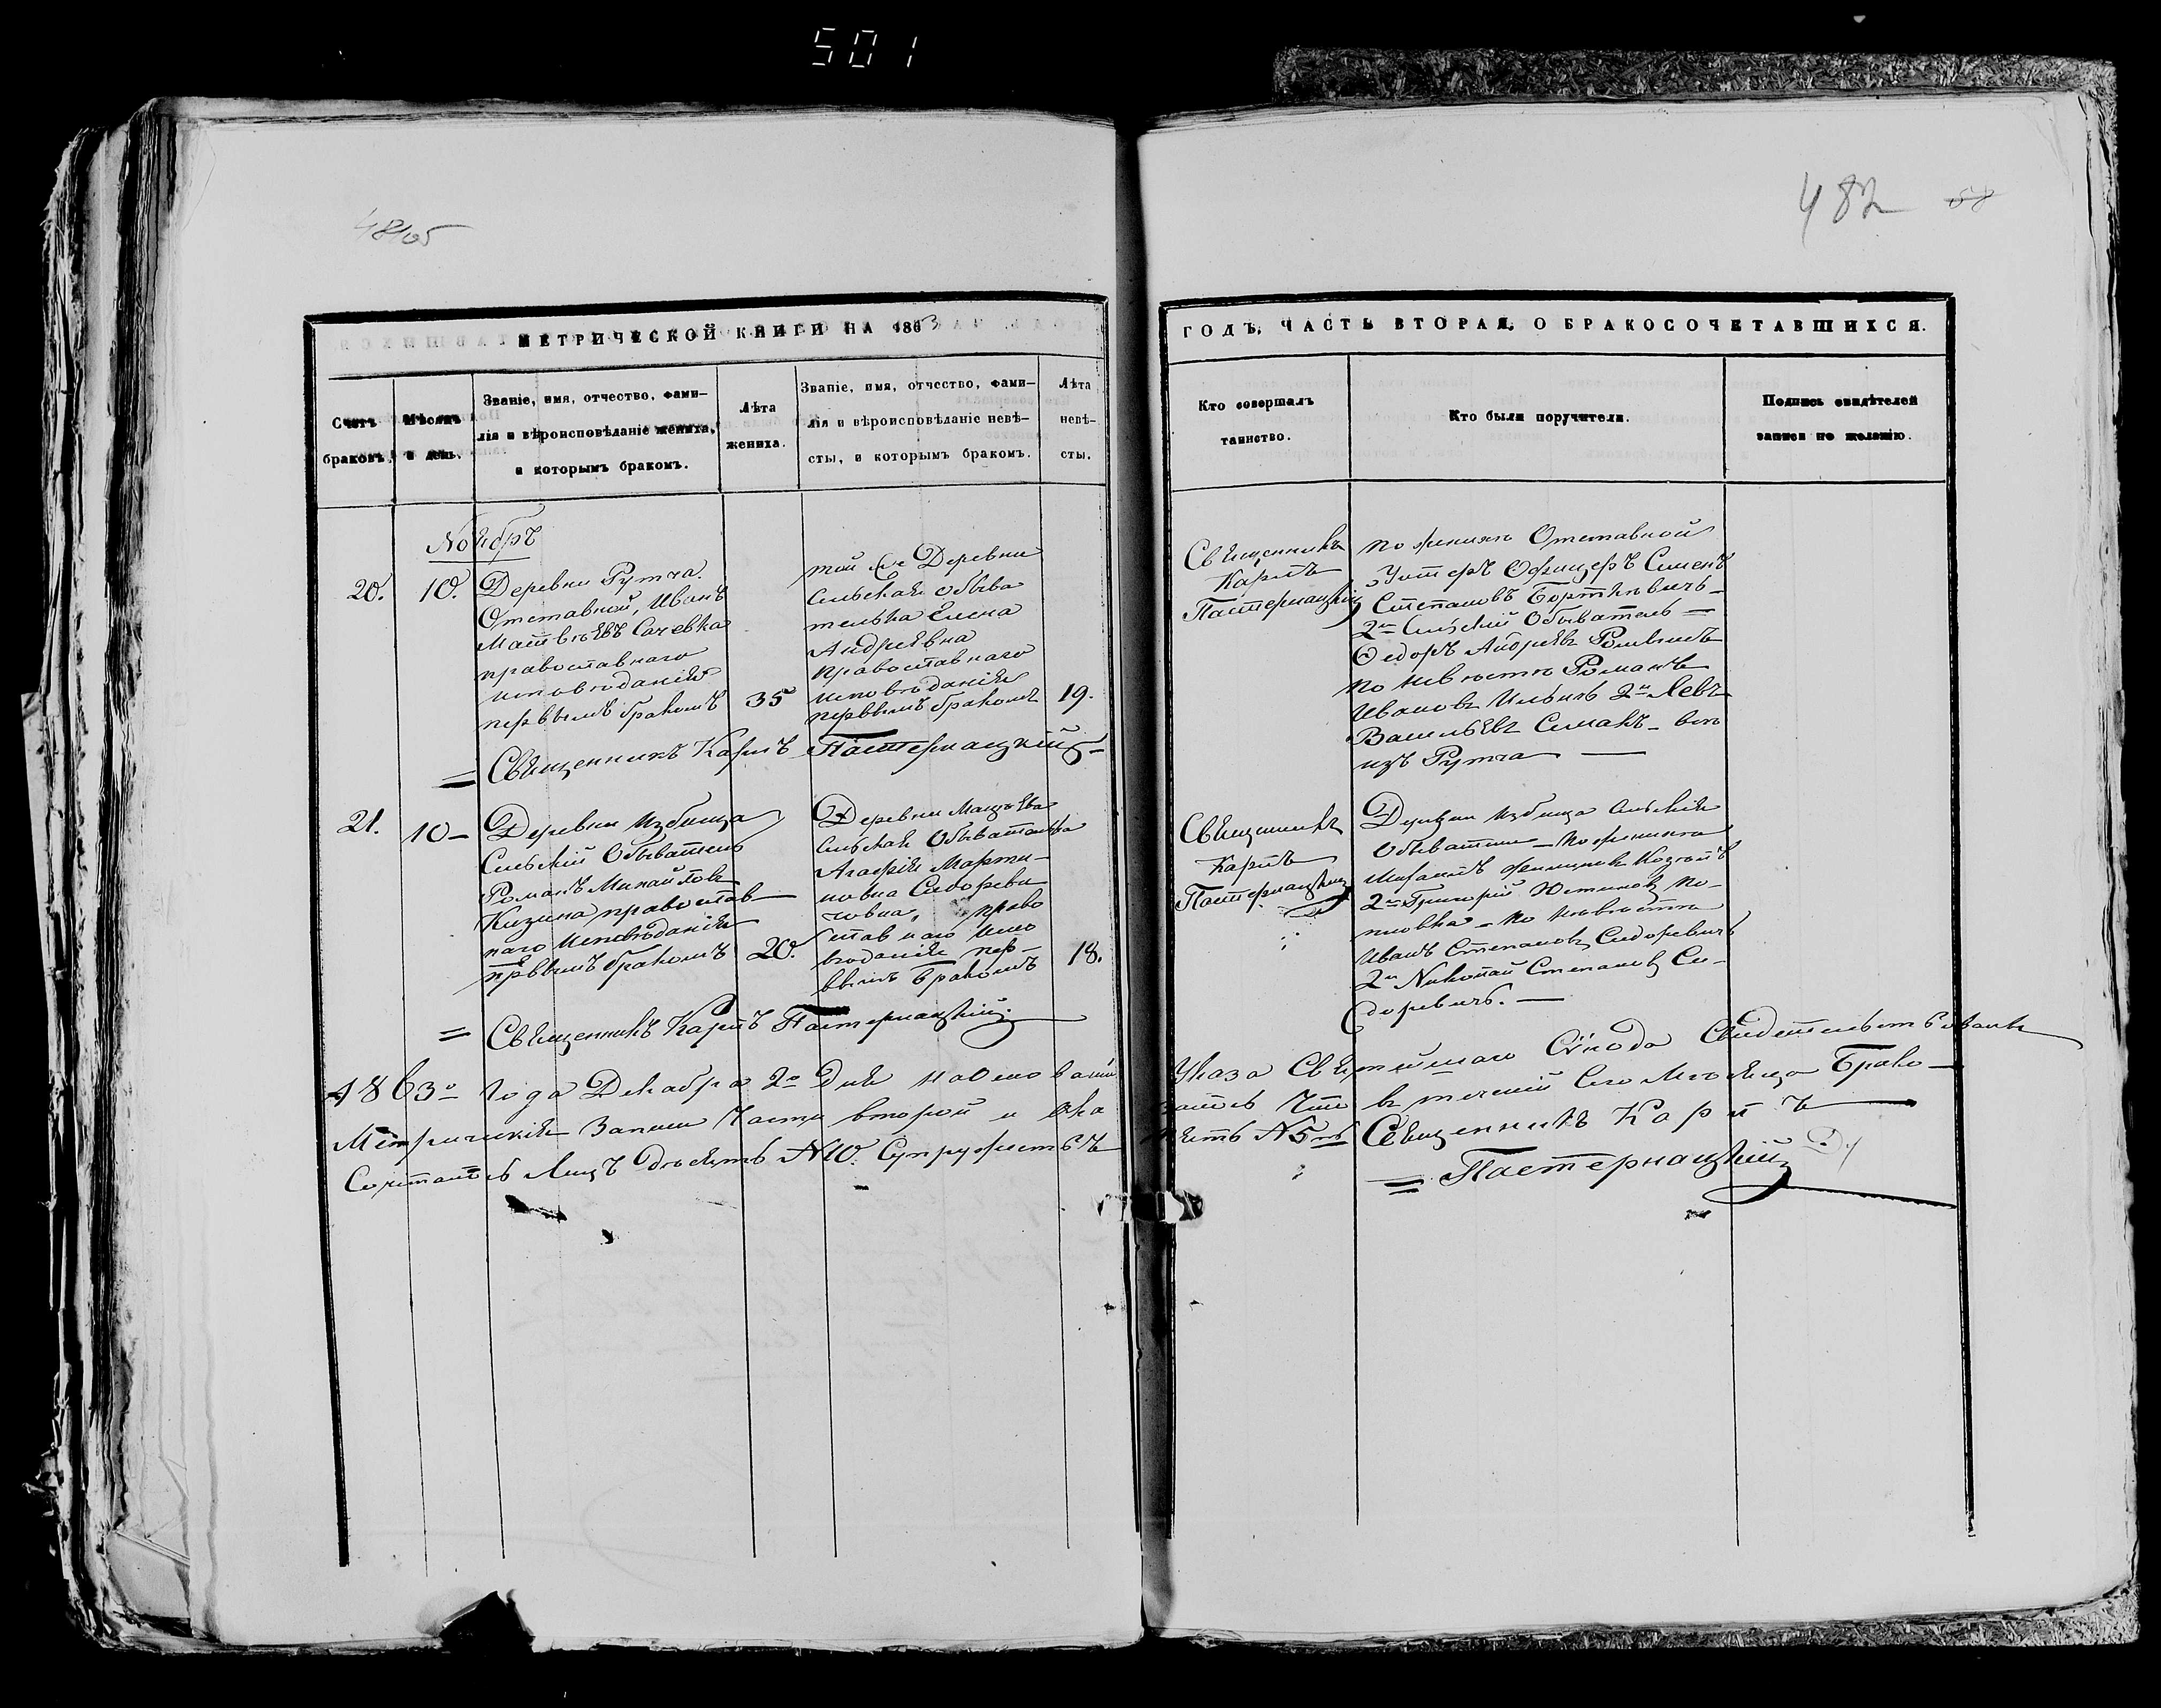 501
482
58
МЕТРИЧЕСКОЙ КНИГИ НА 1863
ГОДЪ, ЧАСТЬ ВТОРАЯ, О БРАКОСОЧЕТАВШИХСЯ.
Счетъ
браковъ.
Мѣсяцъ
и день.
Званіе, имя, отчество, фами-
лія и вѣроисповѣданіе жениха,
и которымъ бракомъ.
Лѣта
жениха.
Званіе, имя, отчество, фами-
лія и вѣроисповѣданіе невѣ-
сты, и которымъ бракомъ.
Лѣта
невѣ-
сты.
Кто совершалъ
таинство.
Кто были поручители.
Подпись свидѣтелей
записи по желанію.
Ноябрь
20.
10.
Деревни Рутча
Отставной, Иванъ
Матвѣевъ Сачевка
православнаго
исповѣданія
первымъ бракомъ
35
той же Деревни
Сельская обыва
телька Елена
Андреевна
православнаго
исповѣданія
первымъ бракомъ
19.
Священникъ
Карпъ
Пастернацкій
по женихѣ Отставной
Унтеръ Офицеръ Семенъ
Степановъ
2й Сельскій Обыватель
Федоръ Андреевъ
по невѣстѣ Романъ
Ивановъ Ильинъ 2й Левъ
Васильевъ Симакъ - всѣ
изъ Рутча
= Священникъ Карпъ Пастернацкій
21.
10 -
Деревни Избища
Сельскій Обыватель
Романъ Михайловъ
Кизина православ
наго Исповѣданія
первымъ бракомъ
20.
Деревни
Сельская Обывателька
Агафія Марти-
новна Сидореви
човна, право
славнаго испо
вѣданія пер-
вымъ бракомъ
18.
Священникъ
Карпъ
Пастернацкій
Деревни Избища Сельскіе
Обыватели - по женихѣ
2й Григорій Устиновъ
- по невѣстѣ
Иванъ Степановъ Сидоревичъ
2й Николай Степановъ Си-
доревичъ. -
= Священникъ Карпъ Пастернацкій
1863го Года Декабря 2го Дня на Основаніи Указа Святѣйшаго Сѵнода Свидетельствовалъ
Метрическія Записи Части второй и ока зались Что въ теченіи сего Мѣсяца Брако-
Сочталось Лицъ десять №10. Супружествъ пять №5ть Священникъ Карпъ
= Пастернацкій